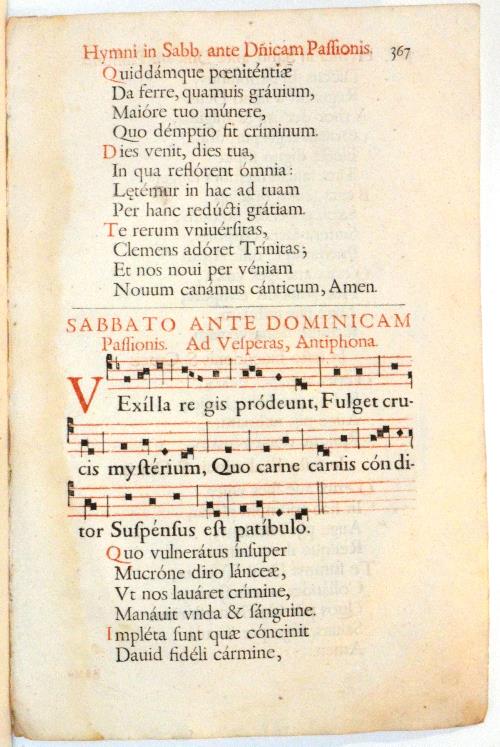 Hymni in Sabb. ante Dñicam Paſſionis. 367
Quiddámque pœniténtiæ
Da ferre, quamuis gráuium,
Maióre tuo múnere,
Quo démptio ſit críminum.
Dies venit, dies tua,
In qua reflórent ómnia:
Lętémur in hac ad tuam
Per hanc redúcti grátiam.
Te rerum vniuérſitas,
Clemens adóret Trínitas;
Et nos noui per véniam
Nouum canámus cánticum, Amen.
SABBATO ANTE DOMINICAM
Paſſionis. Ad Veſperas, Antiphona.
VExílla regis pródeunt, Fulget cru-
cis myſtérium, Quo carne carnis cóndi-
tor Suſpénſus eſt patíbulo.
Quo vulnerátus ínſuper
Mucróne diro lánceæ,
Vt nos lauáret crímine,
Manáuit vnda & ſánguine.
Impléta ſunt quæ cóncinit
Dauid fidéli cármine,